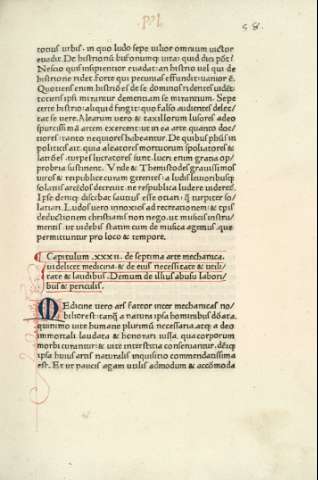 58.
tonus urbis. in quo ludo sepe uilior omnium uictor
euadit. De histrionū bufonumq; uita: quid dici pōt?
Nescio quis insipientior euadat: an histrio uel qui de
histrione ridet. Forte qui pecunias effundit: uanior ē.
Quotiens enim histriōes de se dominos ridentes uidēt
totiens ipsi mirantur dementiam se mirantum. Sepe
certe histrio: aliquid fingit: quo falso audientes delec/
tat se uere. Alearum uero & taxillorum lusores adeo
spurcissimā artem exercent: ut in ea arte quanto doc/
tiores: tanto nequiores habeantur. De quibus phīs in
politicis ait. quia aleatores mortuorum spoliatores &
latrōes: turpes lucratores sunt. lucri enim gratia op/
probria sustinent. Vnde & Themistocles grauissimos
uiros & reipublice curam gerentes: a ludis litionibusq;
solatiis arcēdos decreuit. ne respublica ludere uideret̄.
Ipse deniq; discebat satius esse ociari: q̄ turpiter so/
latiari. Ludos uero innoxios ad recreationem: & tp̄is
deductionem christianis non nego. ut musicis instru/
mentis. ut uidebis statim cum de musica agemus. que
permittuntur pro loco & tempore.
Capitulum .XXXII. de septima arte mechanica.
uidelicet medicina. & de eius necessitate & utili/
tate & laudibus. Demum de illius abusu labori/
bus & periculis.
MEdicine uero ars fateor inter mechanicas no/
bilior est: tanq̄ a natura ipsa hominibus dōata.
quinimo uite humane plurimū necessaria. atq; a deo
immortali laudata & honorari iussa. qua corporum
morbi curantur: & uite interstitia conseruantur. dēiq;
ipsa huius artis naturalis inquisitio commendatissima
est. Et ut paucis agam utilis admodum & accōmoda